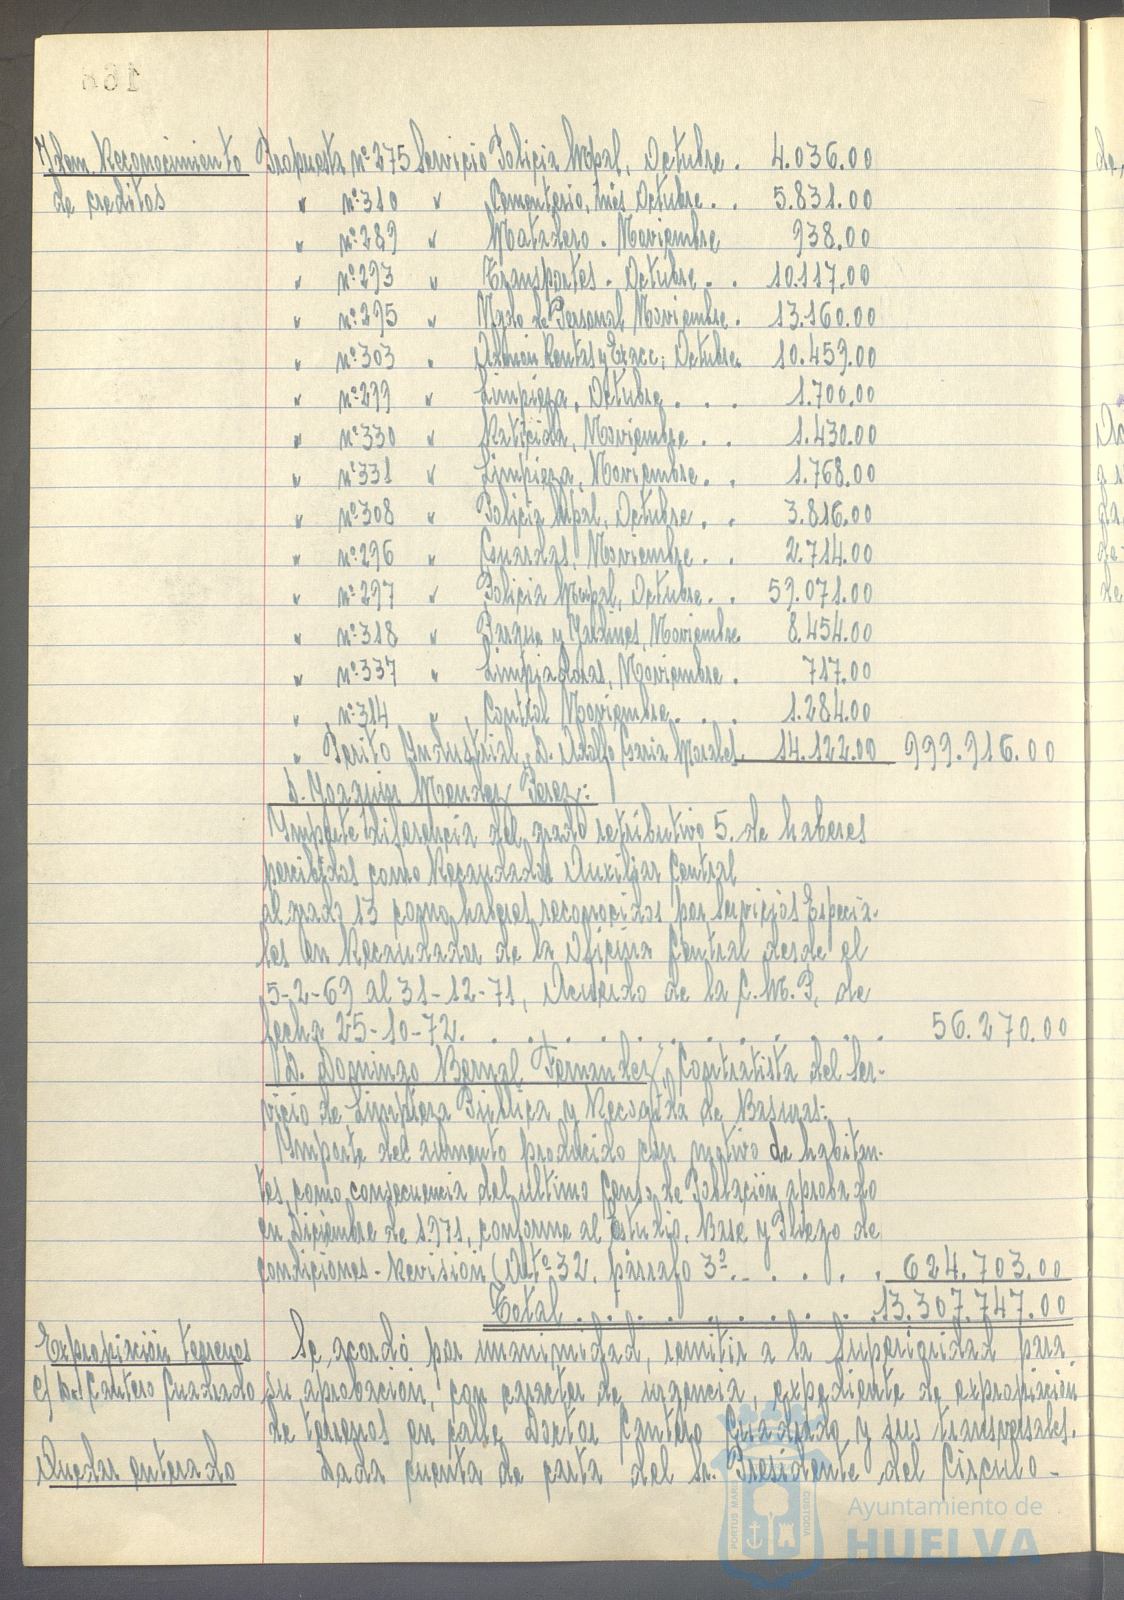 168
Idem Reconocimiento Propuesta nº 275 Servicio Policia Mpal, Octubre . 4.036.00
de creditos " nº 310 " Cementerio, mes Octubre . . 5.831.00
" nº 289 " Matadero . Noviembre 938.00
" nº 293 " Transportes . Octubre . . 10.117.00
" nº 295 " Ngdo de Personal Noviembre . 13.160.00
" nº 303 " Admon Rentas y Exacc, Octubre. 10.459.00
" nº 299 " Limpieza, Octubre . . . 1.700.00
" nº 330 " Raticida, Noviembre . . 1.430.00
" nº 331 " Limpieza, Noviembre . . 1.768.00
" nº 308 " Policia Mpal, Octubre . . 3.816.00
" nº 296 " Guardas, Noviembre . . 2.714.00
" nº 297 " Policia Mupal, Octubre . . 59.071.00
" nº 318 " Parque y Jardines, Noviembre 8.454.00
" nº 337 " Limpiadoras, Noviembre . 717.00
" nº 314 " Control Noviembre . . . 1.284.00
" Perito Industrial, D. Adolfo Garcia Morales. 14.122.00 999.916.00
D. Joaquin Mendez Perez:
Importe diferencia del grado retributivo 5. de haberes
percibidos como Recaudador Auxiliar Central
al grado 13 como haberes reconocidos por Servicios Especia-
les en Recaudador de la Oficina Central desde el
5-2-69 al 31-12-71, Acuerdo de la C.M.P, de
fecha 25-10-72. . . . . . . . . . . . 56.270.00
D. Domingo Bernal Fernandez, Contratista del Ser-
vicio de Limpieza Pública y Recogida de Basuras:
Importe del aumento producido con motivo de habitan-
tes, como consecuencia del ultimo Censo de Población aprobado
en Diciembre de 1.971, conforme al Estudio, Base y Pliego de
condiciones - Revisión (Artº 32, párrafo 3º. . . . . . 624.703.00
Total . . . . . . . . . . 13.307.747.00
Expropiación terrenos Se acordó por unanimidad, remitir a la Superioridad para
c/ Dr/ Cantero Cuadrado su aprobación, con caracter de urgencia, expediente de expropiación
de terrenos en calle Doctor Cantero Cuadrado y sus transversales.
Quedar enterado Dada cuenta de carta del Sr. Presidente del Circulo -
PORTUS MARIS CUSTODIA
Ayuntamiento de
HUELVA